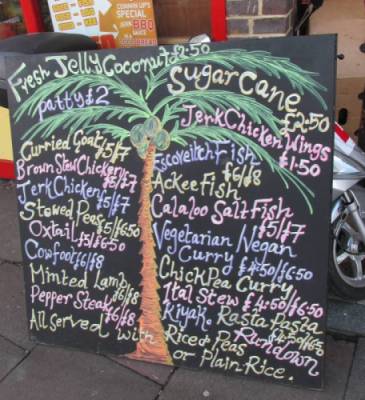 CORNIN UPS
SPECIAL
BBQ
Fresh Jelly Coconut £2·50
Sugar Cane
£2·50
patty £2
Jerk Chicken Wings
£1·50
Curried Goat £5/£7
Brown Stew Chicken £5/£7
Jerk Chicken £5/£7
Stewed Peas £5/6·50
Oxtail £5/6·50
Cowfoot £6/£8
Minted Lamb £6/£8
Pepper Steak £6/£8
Escoveitch Fish
£6/£8
Ackee Fish
Calaloo Salt Fish
£5/£7
Vegetarian Vegan
Curry £4·50/£6·50
Chick Pea Curry
Ital Stew £4·50/£6·50
Kiyak. Rasta Pasta
£4·50/£6·5
Rundown
All Served with Rice & Peas
or Plain Rice.